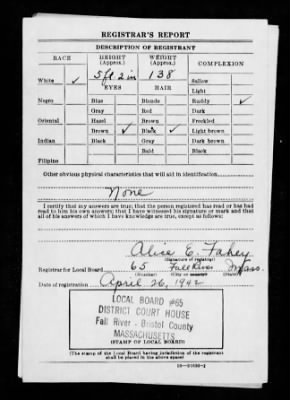 REGISTRAR'S REPORT
DESCRIPTION OF REGISTRANT
RACE HEIGHT (Approx.) WEIGHT (Approx.) COMPLEXION
White ✓ 5 ft 2 in 138 Sallow
EYES HAIR Light
Negro Blue Blonde Ruddy ✓
Gray Red Dark
Oriental Hazel Brown Freckled
Brown ✓ Black ✓ Light brown
Indian Black Gray Dark brown
Bald Black
Filipino
Other obvious physical characteristics that will aid in identification
None
I certify that my answers are true; that the person registered has read or has had
read to him his own answers; that I have witnessed his signature or mark and that
all of his answers of which I have knowledge are true, except as follows:
Alice E. Fahey
(Signature of registrar)
Registrar for Local Board 65 Fall River Mass.
(Number) (City or county)
Date of registration April 26, 1942
LOCAL BOARD #65
DISTRICT COURT HOUSE
Fall River - Bristol County
MASSACHUSETTS
(STAMP OF LOCAL BOARD)
(The stamp of the Local Board having jurisdiction of the registrant
shall be placed in the above space)